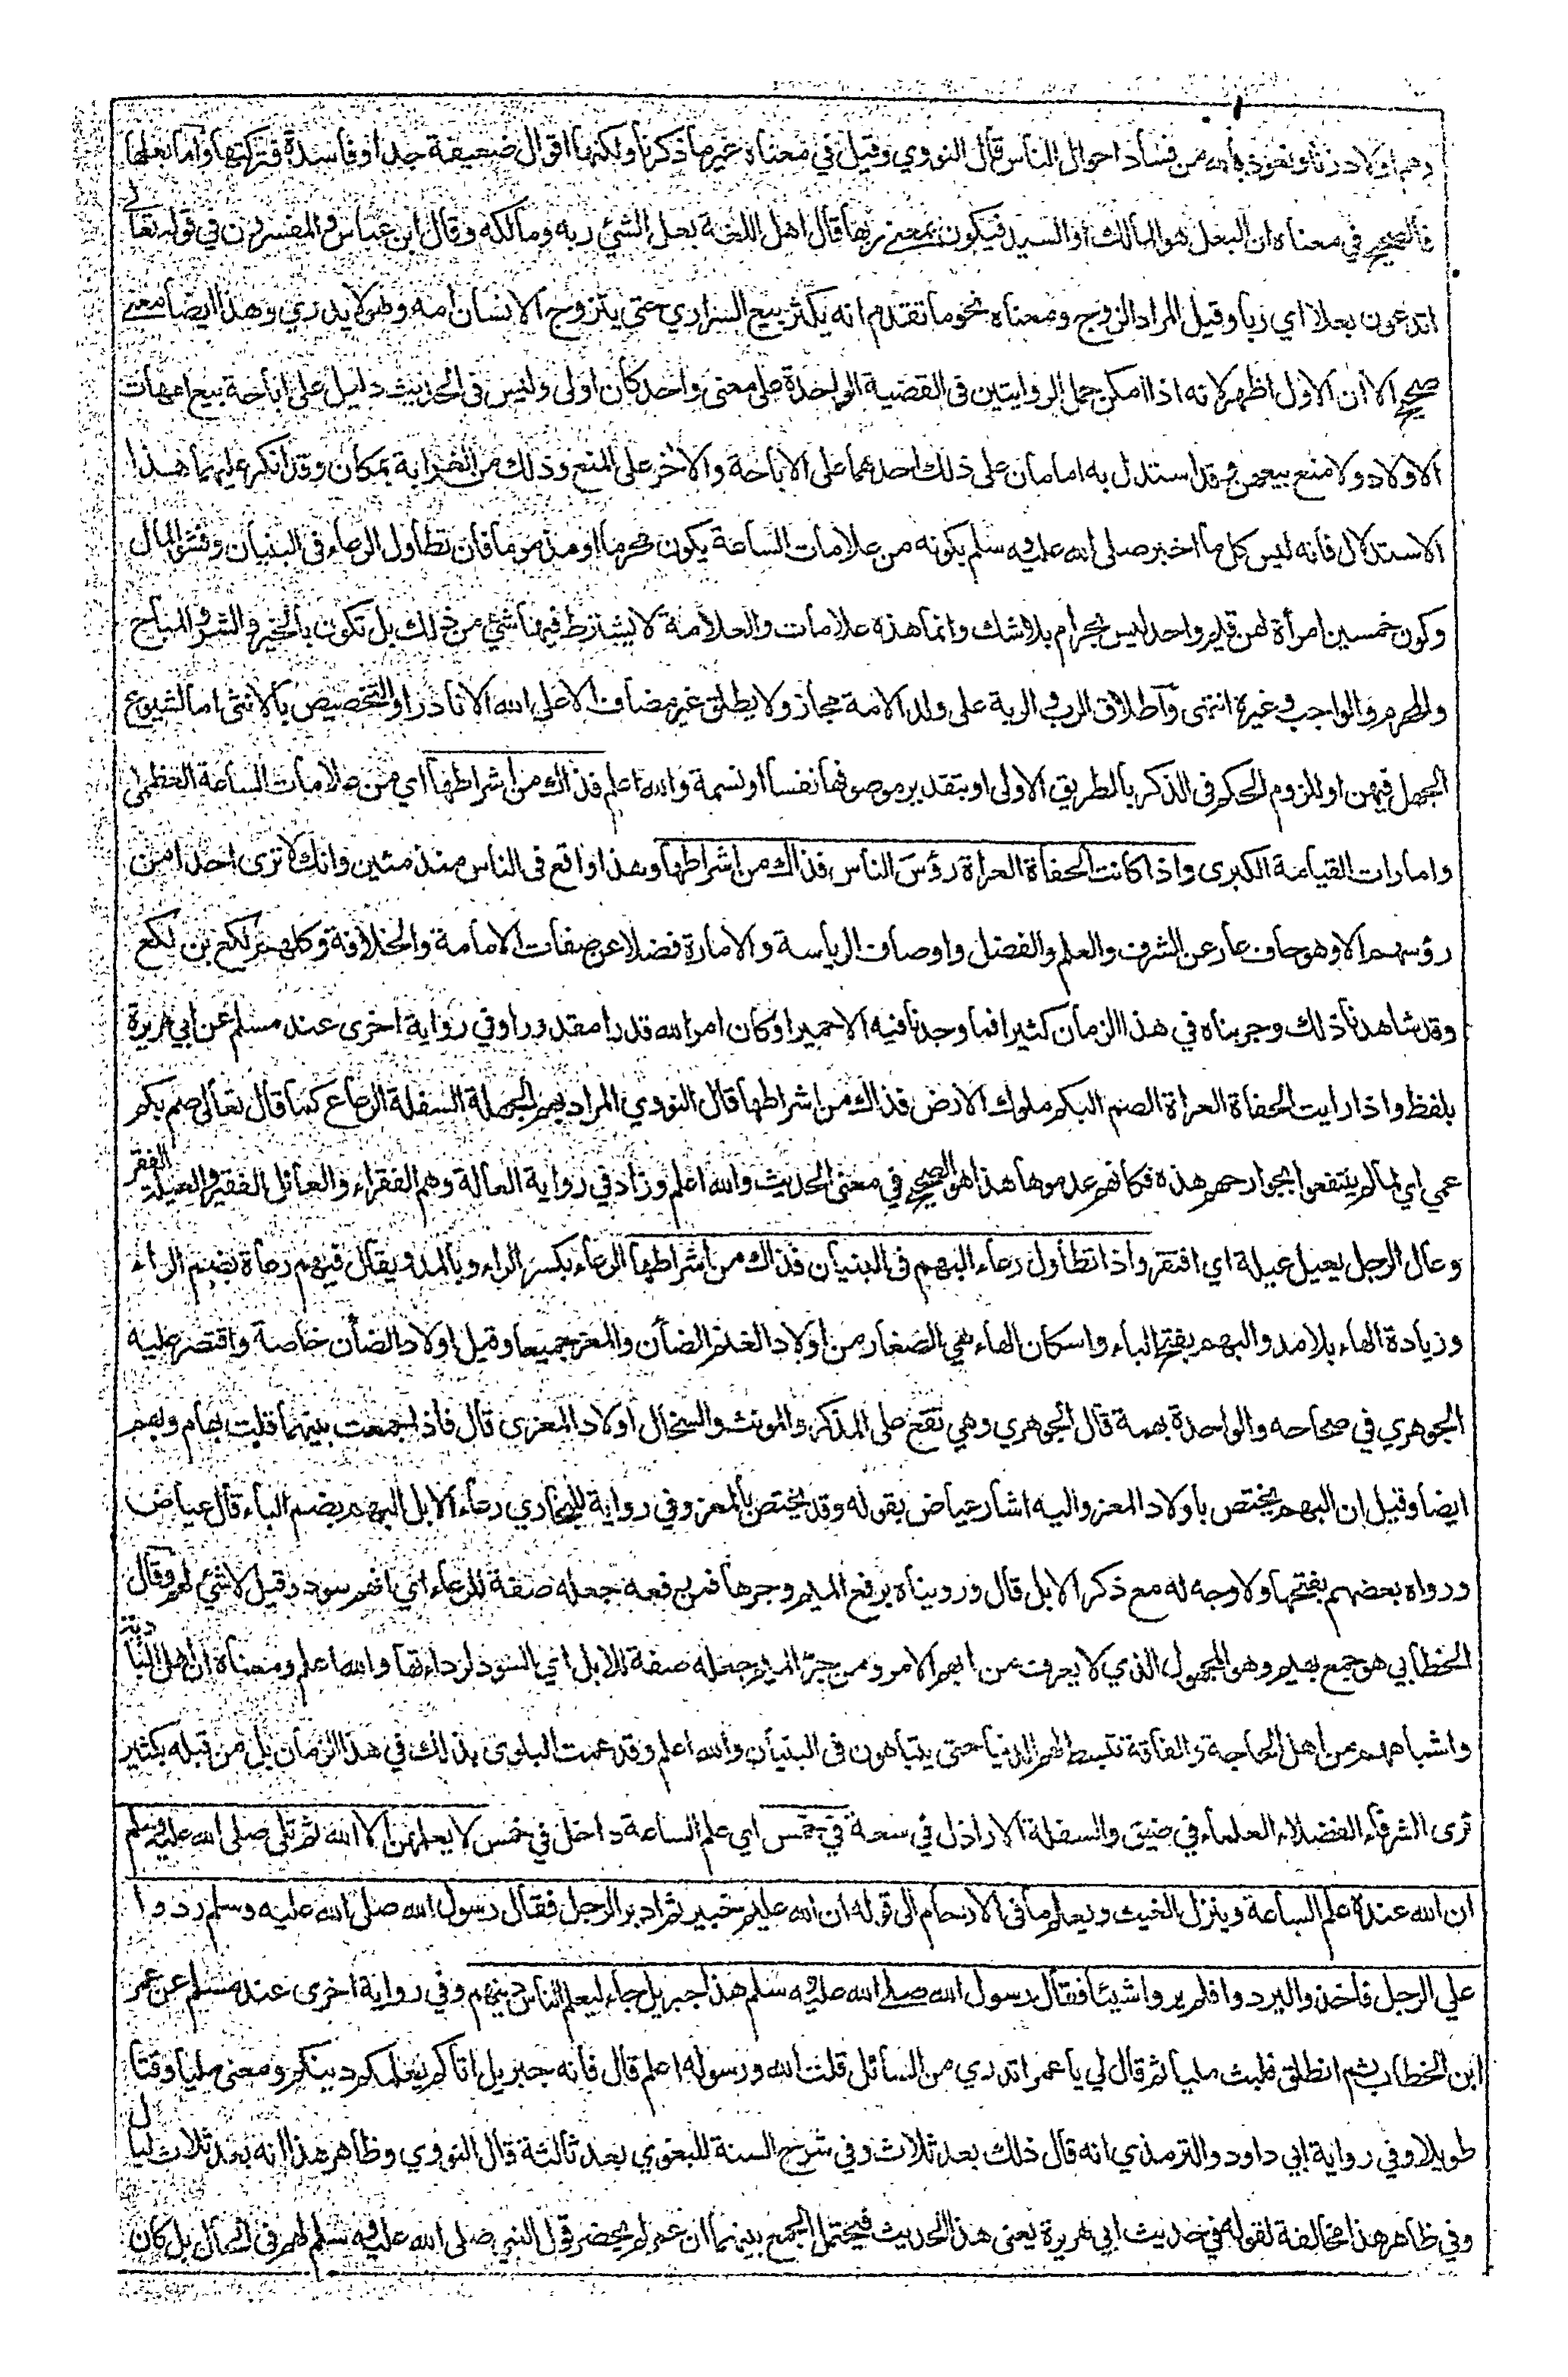 وهم اولاد زنا ونعوذ بالله من فساد احوال الناس قال النووي وقيل في معناه غير ما ذكرنا ولكنها اقوال ضعيفة جدا او فاسدة فتركتها واما بعلها
فالصحيح في معناه ان البعل هو المالك او السيد فيكون بمعنى ربها قال اهل اللغة بعل الشئ ربه ومالكه وقال ابن عباس والمفسرون في قوله تعالى
اتدعون بعلا اي ربا وقيل المراد الزوج ومعناه نحو ما تقدم انه يكثر بيع السراري حتى يتزوج الانسان امه وهو لا يدري وهذا ايضا معنى
صحيح الا ان الاول اظهر لانه اذا امكن حمل الروايتين فى القضية الواحدة على معنى واحد كان اولى وليس فى الحديث دليل على اباحة بيع امهات
الاولاد ولا منع بيعهن وقد استدل به امامان على ذلك احدهما على الاباحة والاخر على المنع وذلك من الغرابة بمكان وقد انكر عليهما هذا
الاستدلال فانه ليس كل ما اخبر صلى الله عليه وسلم بكونه من علامات الساعة يكون محرما او مذموما فان تطاول الرعاء فى البنيان وفشو المال
وكون خمسين امرأة لهن قيم واحد ليس بحرام بلا شك وانما هذه علامات والعلامة لا يشترط فيها شئ من ذلك بل تكون بالخير والشر والمباح
والمحرم والواجب وغيره انتهى واطلاق الرب والربة على ولد الامة مجاز ولا يطلق غير مضاف الا على الله الا نادرا والتخصيص بالانثى اما لشيوع
الجهل فيهن او للزوم الحكم فى الذكر بالطريق الاولى او بتقدير موصوفها نفسا او نسمة والله اعلم فذاك من اشراطها اي من علامات الساعة العظمى
وامارات القيامة الكبرى واذا كانت الحفاة العراة رؤس الناس فذاك من اشراطها وهذا واقع فى الناس منذ مئين وانك لا ترى احدا من
رؤسهم الا وهو حاف عار عن الشرف والعلم والفضل واوصاف الرياسة والامارة فضلا عن صفات الامامة والخلافة وكلهم لكع بن لكع
وقد شاهدنا ذلك وجربناه في هذا الزمان كثيرا فما وجدنا فيه الا حميرا وكان امر الله قدرا مقدورا وفي رواية اخرى عند مسلم عن ابي هريرة
بلفظ واذا رايت الحفاة العراة الصم البكم ملوك الارض فذاك من اشراطها قال النووي المراد بهم الجهلة السفلة الرعاع كما قال تعالى صم بكم
عمي اي لما لم ينتفعوا بجوارحهم هذه فكانهم عدموها هذا هو الصحيح في معنى الحديث والله اعلم وزاد في رواية العالة وهم الفقراء والعائل الفقير والعيلة الفقر
وعال الرجل يعيل عيلة اي افتقر واذا تطاول رعاء البهم فى البنيان فذاك من اشراطها الرعاء بكسر الراء وبالمد ويقال فيهم رعاة بضم الراء
وزيادة الهاء بلا مد والبهم بفتح الباء واسكان الهاء هي الصغار من اولاد الغنم الضأن والمعز جميعا وقيل اولاد الضأن خاصة واقتصر عليه
الجوهري في صحاحه والواحدة بهمة قال الجوهري وهي تقع على المذكر والمونث والسخال اولاد المعزى قال فاذا جمعت بينهما قلت بهام وبهم
ايضا وقيل ان البهم يختص باولاد المعز واليه اشار عياض بقوله وقد يختص بالمعز وفي رواية للبخاري رعاء الابل البهم بضم الباء قال عياض
ورواه بعضهم بفتحها ولا وجه له مع ذكر الابل قال ورويناه برفع الميم وجرها فمن رفعه جعله صفة للرعاء اي انهم سود وقيل لا شئ لهم وقال
الخطابي هو جمع بهيم وهو المجهول الذي لا يعرف من ابهم الامر ومن جر الميم جعله صفة للابل اي السود لرداءتها والله اعلم ومعناه ان اهل البادية
واشباههم من اهل الحاجة والفاقة تبسط لهم الدنيا حتى يتباهون فى البنيان والله اعلم وقد عمت البلوى بذلك في هذا الزمان بل من قبله بكثير
ترى الشرفاء الفضلاء العلماء في ضيق والسفلة الاراذل في سعة في خمس اي علم الساعة داخل في خمس لا يعلمهن الا الله ثم تلى صلى الله عليه وسلم
ان الله عنده علم الساعة وينزل الغيث ويعلم ما فى الارحام الى قوله ان الله عليم خبير ثم ادبر الرجل فقال رسول الله صلى الله عليه وسلم ردوا
علي الرجل فاخذوا ليردوا فلم يروا شيئا فقال رسول الله صلى الله عليه وسلم هذا جبريل جاء ليعلم الناس دينهم وفي رواية اخرى عند مسلم عن عمر
ابن الخطاب ثم انطلق فلبث مليا ثم قال لي يا عمر اتدري من السائل قلت الله ورسوله اعلم قال فانه جبريل اتاكم يعلمكم دينكم ومعنى مليا وقتا
طويلا وفي رواية ابي داود والترمذي انه قال ذلك بعد ثلاث وفي شرح السنة للبغوي بعد ثالثة قال النووي وظاهر هذا انه بعد ثلاث ليال
وفي ظاهر هذا مخالفة لقوله في حديث ابي هريرة يعنى هذا الحديث فيحتمل الجمع بينهما ان عمر لم يحضر قول النبي صلى الله عليه وسلم لهم فى الحال بل كان